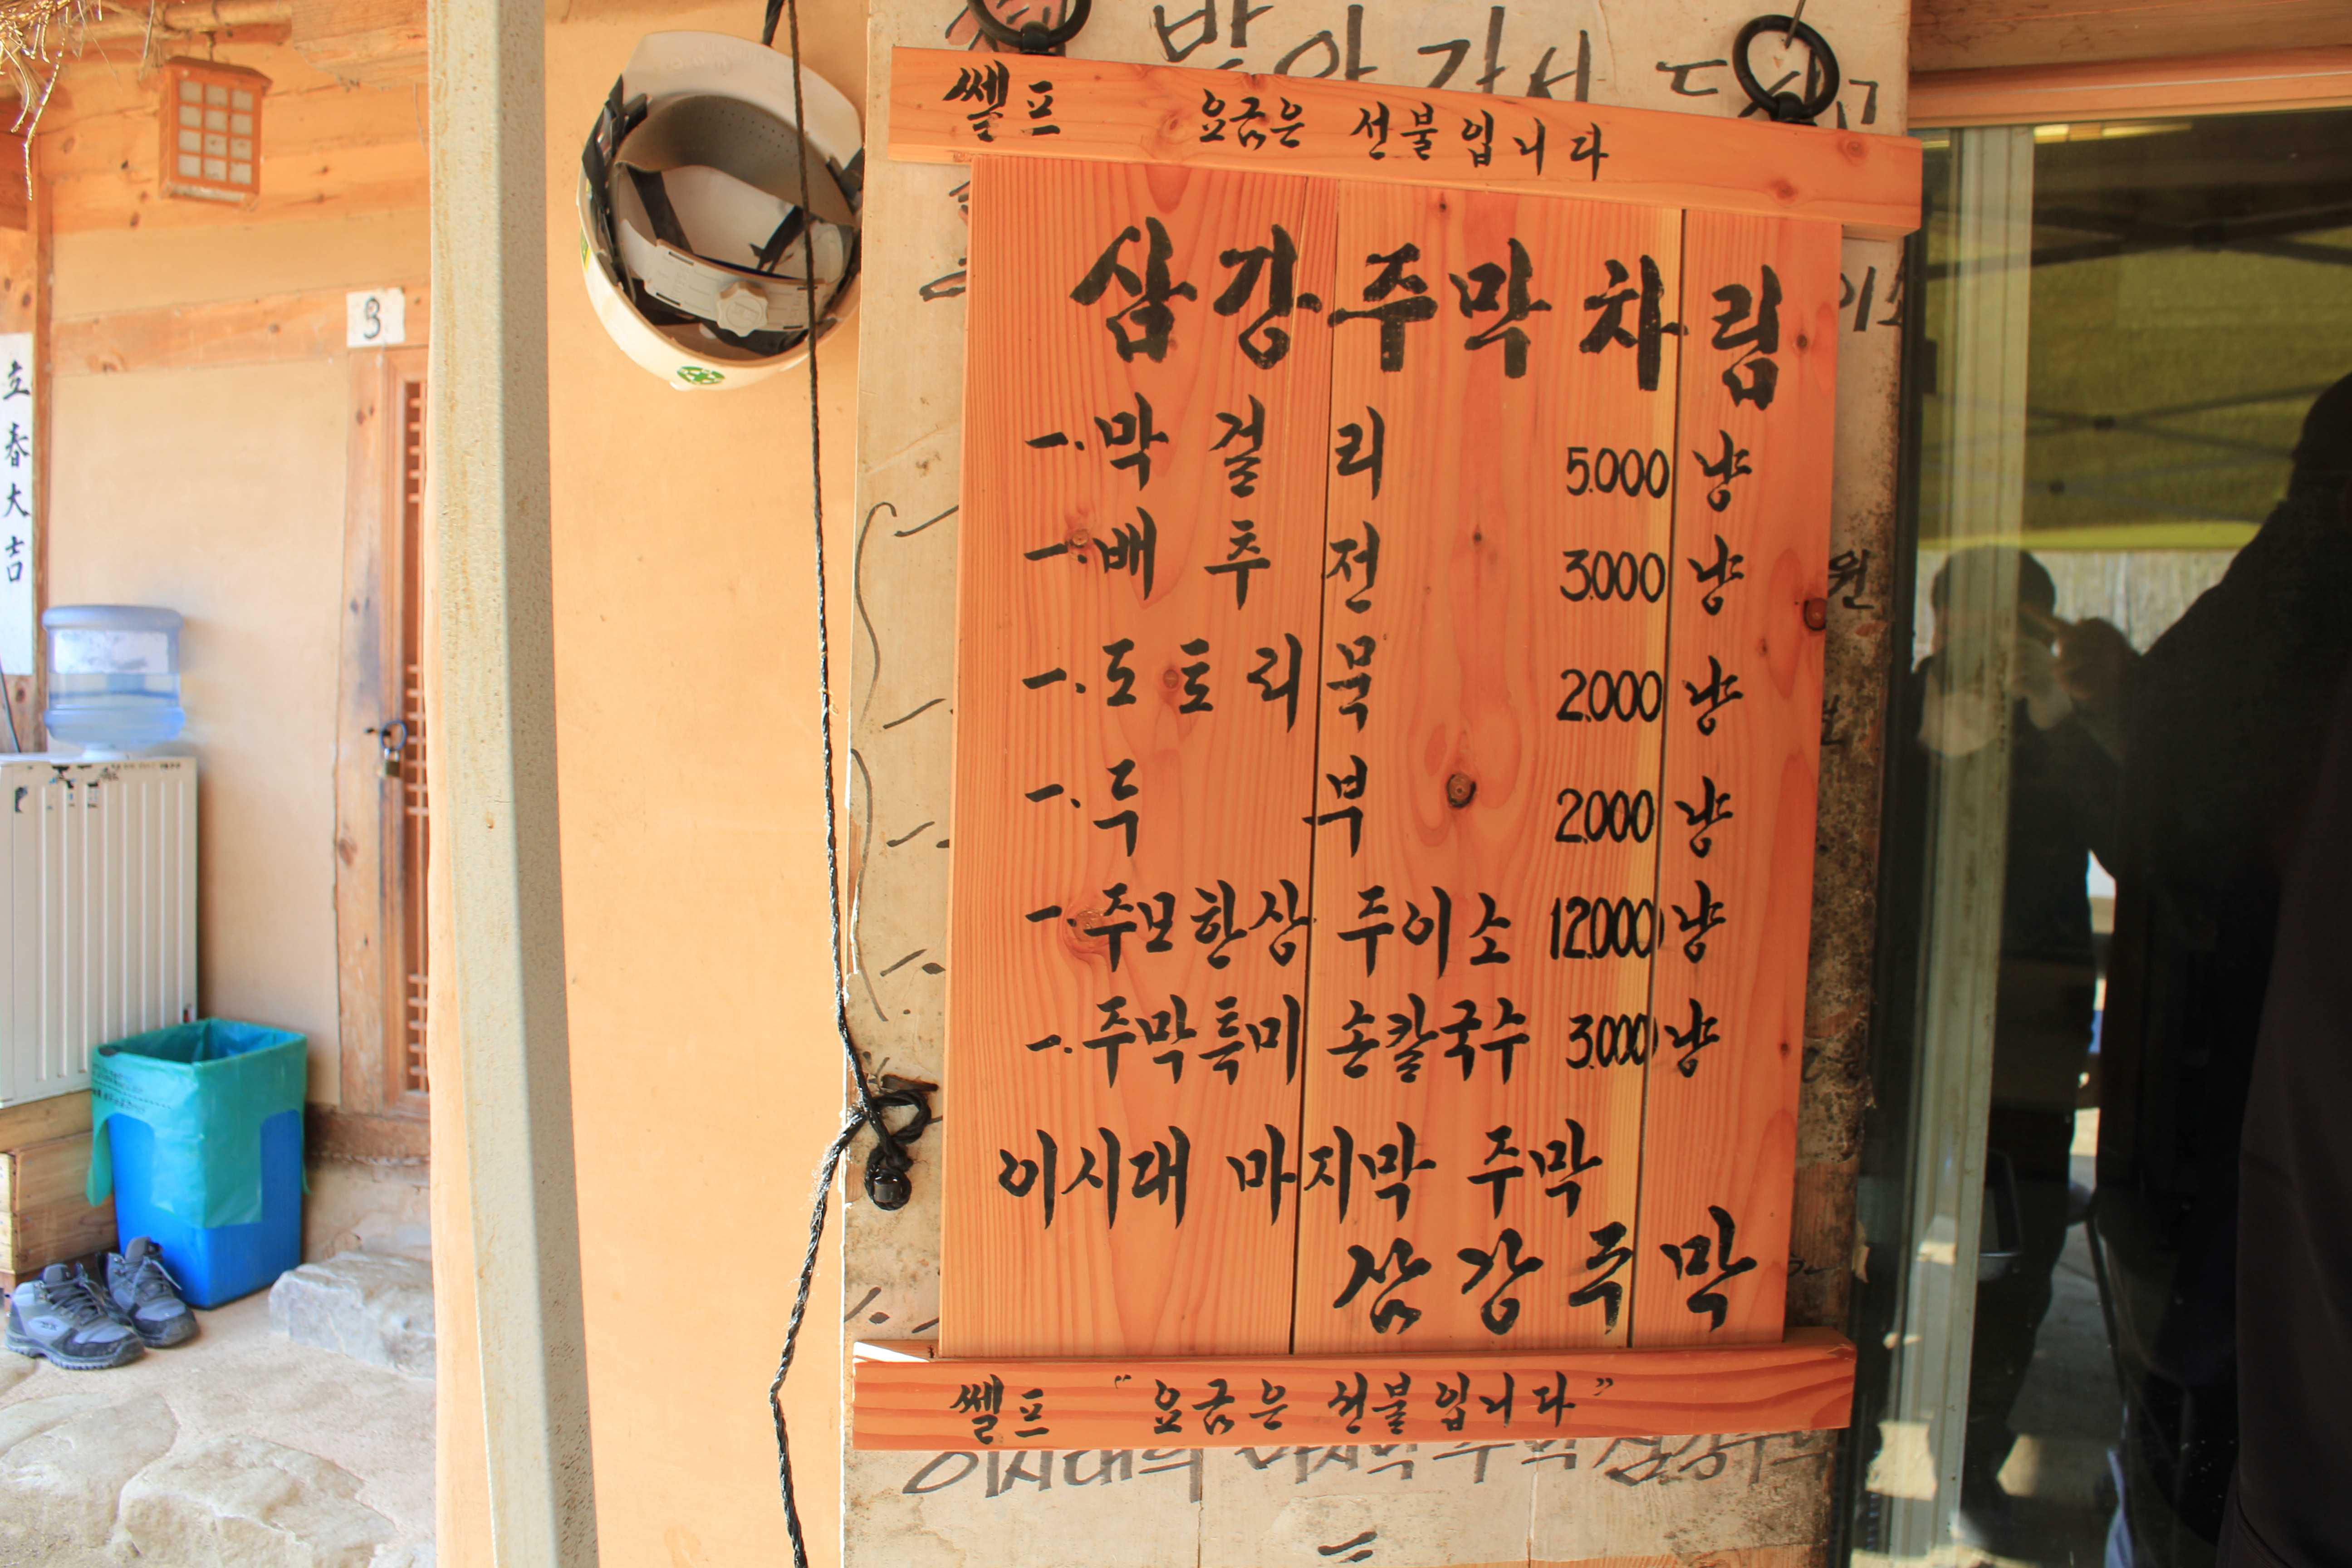 쎌프 요금은 선불입니다
삼강주막차림
一. 막걸리 5.000 냥
一. 배추전 3.000 냥
一. 도토리묵 2.000 냥
一. 두부 2.000 냥
一. 주모한상 주이소 12.000 냥
一. 주막특미 손칼국수 3.000 냥
이시대 마지막 주막
삼강주막
쎌프 “요금은 선불입니다”
立春大吉
3
받아 가서
원
이시대의 마지막 주막 삼강주막